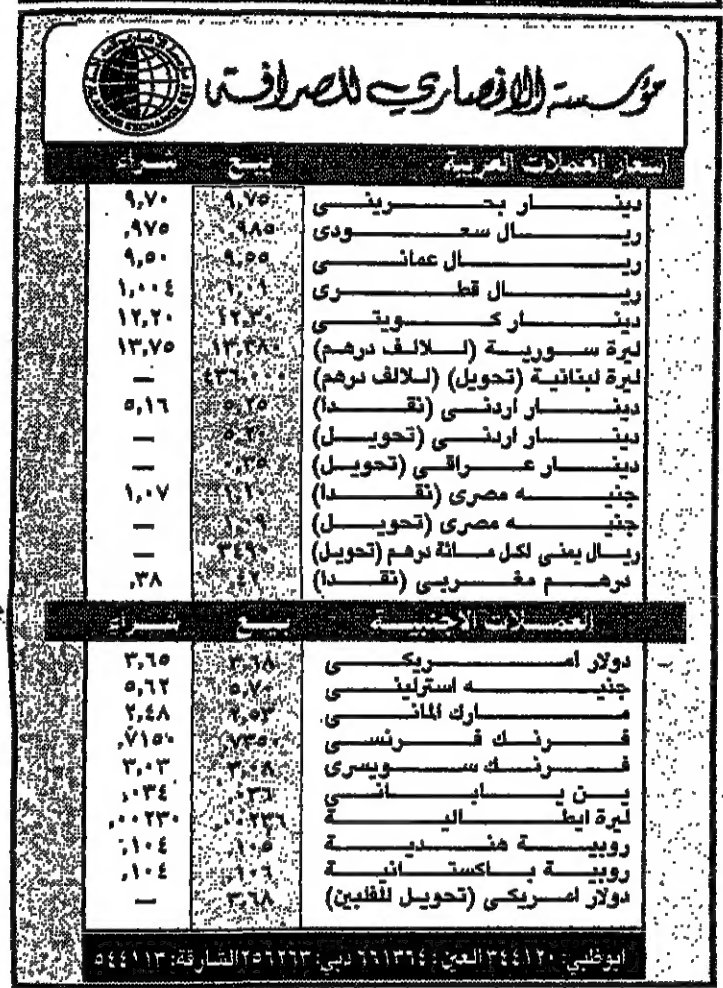 مؤسسة الانصاري للصرافة
AL ANSARI EXCHANGE EST
اسعار العملات العربية بيع شراء
دينار بحرينى ٩,٧٥ ٩,٧٠
ريال سعودى ,٩٨٥ ,٩٧٥
ريال عمانى ٩,٥٥ ٩,٥٠
ريال قطرى ١,٠١ ١,٠٠٤
دينار كويتى ١٢,٣٠ ١٢,٢٠
ليرة سورية (للالف درهم) ١٣,٧٥
ليرة لبنانية (تحويل) (للالف درهم) ٤٣٦,٠٠٠ —
دينار اردنى (نقدا) ٥,٢٥ ٥,١٦
دينار اردنى (تحويل) ٥,٢٠ —
دينار عراقى (تحويل) ٠,٣٥ —
جنيه مصرى (نقدا) ١,١٠ ١,٠٧
جنيه مصرى (تحويل) ١,٠٩ —
ريال يمنى لكل مائة درهم (تحويل) ٣٤٩٠ —
درهم مغربى (نقدا) ٤٢ ,٣٨
العملات الاجنبية بيع شراء
دولار امريكى ٣,٦٨ ٣,٦٥
جنيه استرلينى ٥,٧٠ ٥,٦٢
مارك المانى ٢,٥٣ ٢,٤٨
فرنك فرنسى ,٧٣٥٠ ,٧١٥٠
فرنك سويسرى ٣,٠٨ ٣,٠٣
ين يابانى ,٠٣٦ ,٠٣٤
ليرة ايطالية ,٠٠٢٣٦ ,٠٠٢٣٠
روبية هندية ,١٠٥ ,١٠٤
روبية باكستانية ,١٠٦ ,١٠٤
دولار امريكى (تحويل للفلبين) ٣,٦٨ —
ابوظبي: ٣٤٤١٢٠ العين: ٦٦١٣٦٤ دبي: ٢٥٦٢٦٣ الشارقة: ٥٤٤١١٣